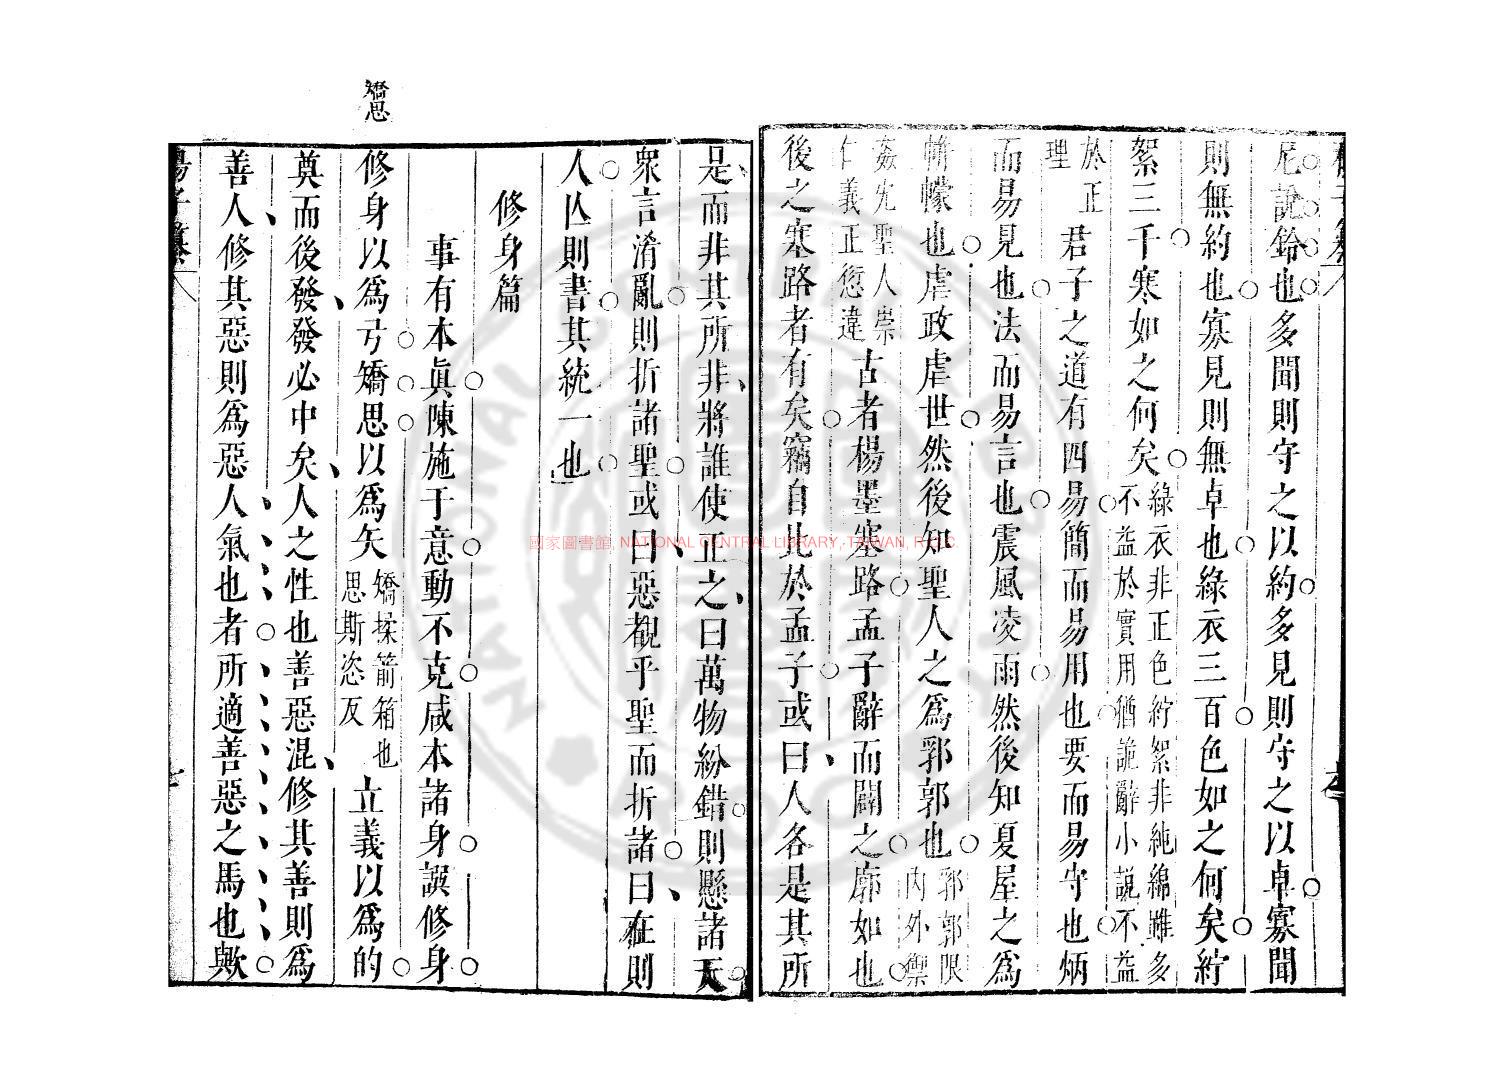 尼說鈴也多聞則守之以約多見則守之以卓寡聞
則無約也寡見則無卓也綠衣三百色如之何矣紵
絮三千寒如之何矣綠衣非正色紵絮非純綿雖多不益於實用猶詭辭小說不益
於正理 君子之道有四易簡而易用也要而易守也炳
而易見也法而易言也震風凌雨然後知夏屋之爲
帡幪也虐政虐世然後知聖人之爲郛郭也郛郭限內外禦
姦宄聖人崇仁義正愆違 古者楊墨塞路孟子辭而闢之廓如也
後之塞路者有矣竊自比於孟子或曰人各是其所
是而非其所非將誰使正之曰萬物紛錯則懸諸天
衆言淆亂則折諸聖或曰惡覩乎聖而折諸曰在則
人亾則書其統一也
修身篇
事有本眞陳施于意動不克咸本諸身譔修身
矯思
修身以爲弓矯思以爲矢矯揉箭箱也思斯恣反 立義以爲的
奠而後發發必中矣人之性也善惡混修其善則爲
善人修其惡則爲惡人氣也者所適善惡之馬也歟
國家圖書館, NATIONAL CENTRAL LIBRARY, TAIWAN, R.O.C.